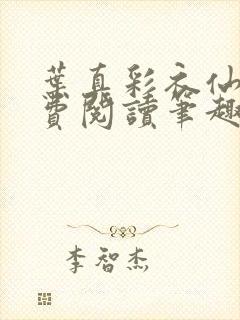 葉真彩衣仙
費閱讀筆趣
李智杰